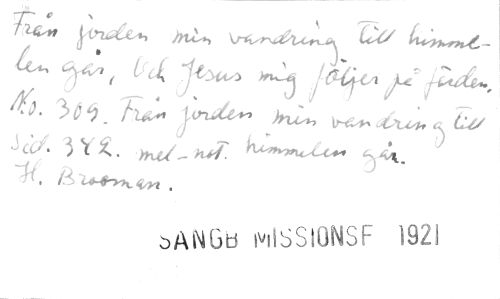 Från jorden min vandring till himme-
len går, Och Jesus mig följer på färden.
No. 309. Från jorden min vandring till
Sid. 342. mel-not. himmelen går.
H. Brooman.
SANGB MISSIONSF 1921